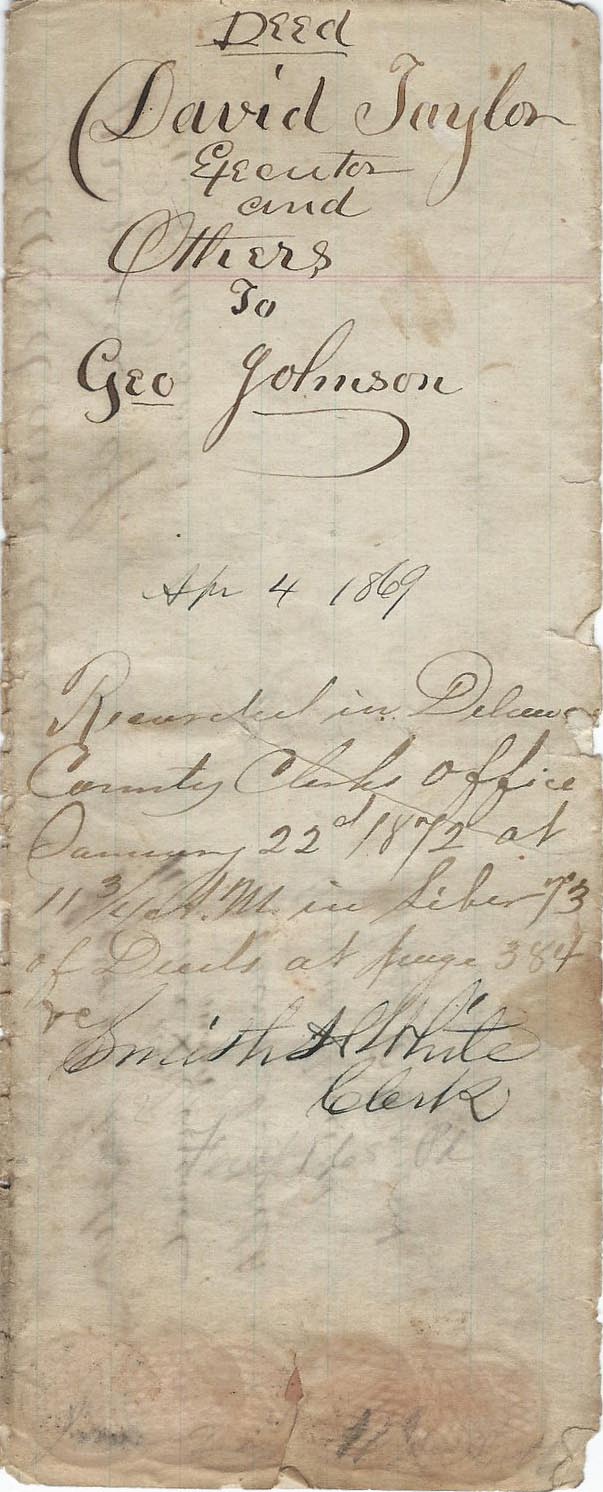 Deed
David Taylor
Executor
and
Others
To
Geo Johnson
Apr 4 1869
Recorded in Delaware
County Clerks office
January 22d 1872 at
11 3/4 A.M. in Liber 73
of Deeds at page 384
&c
Smith H White
Clerk